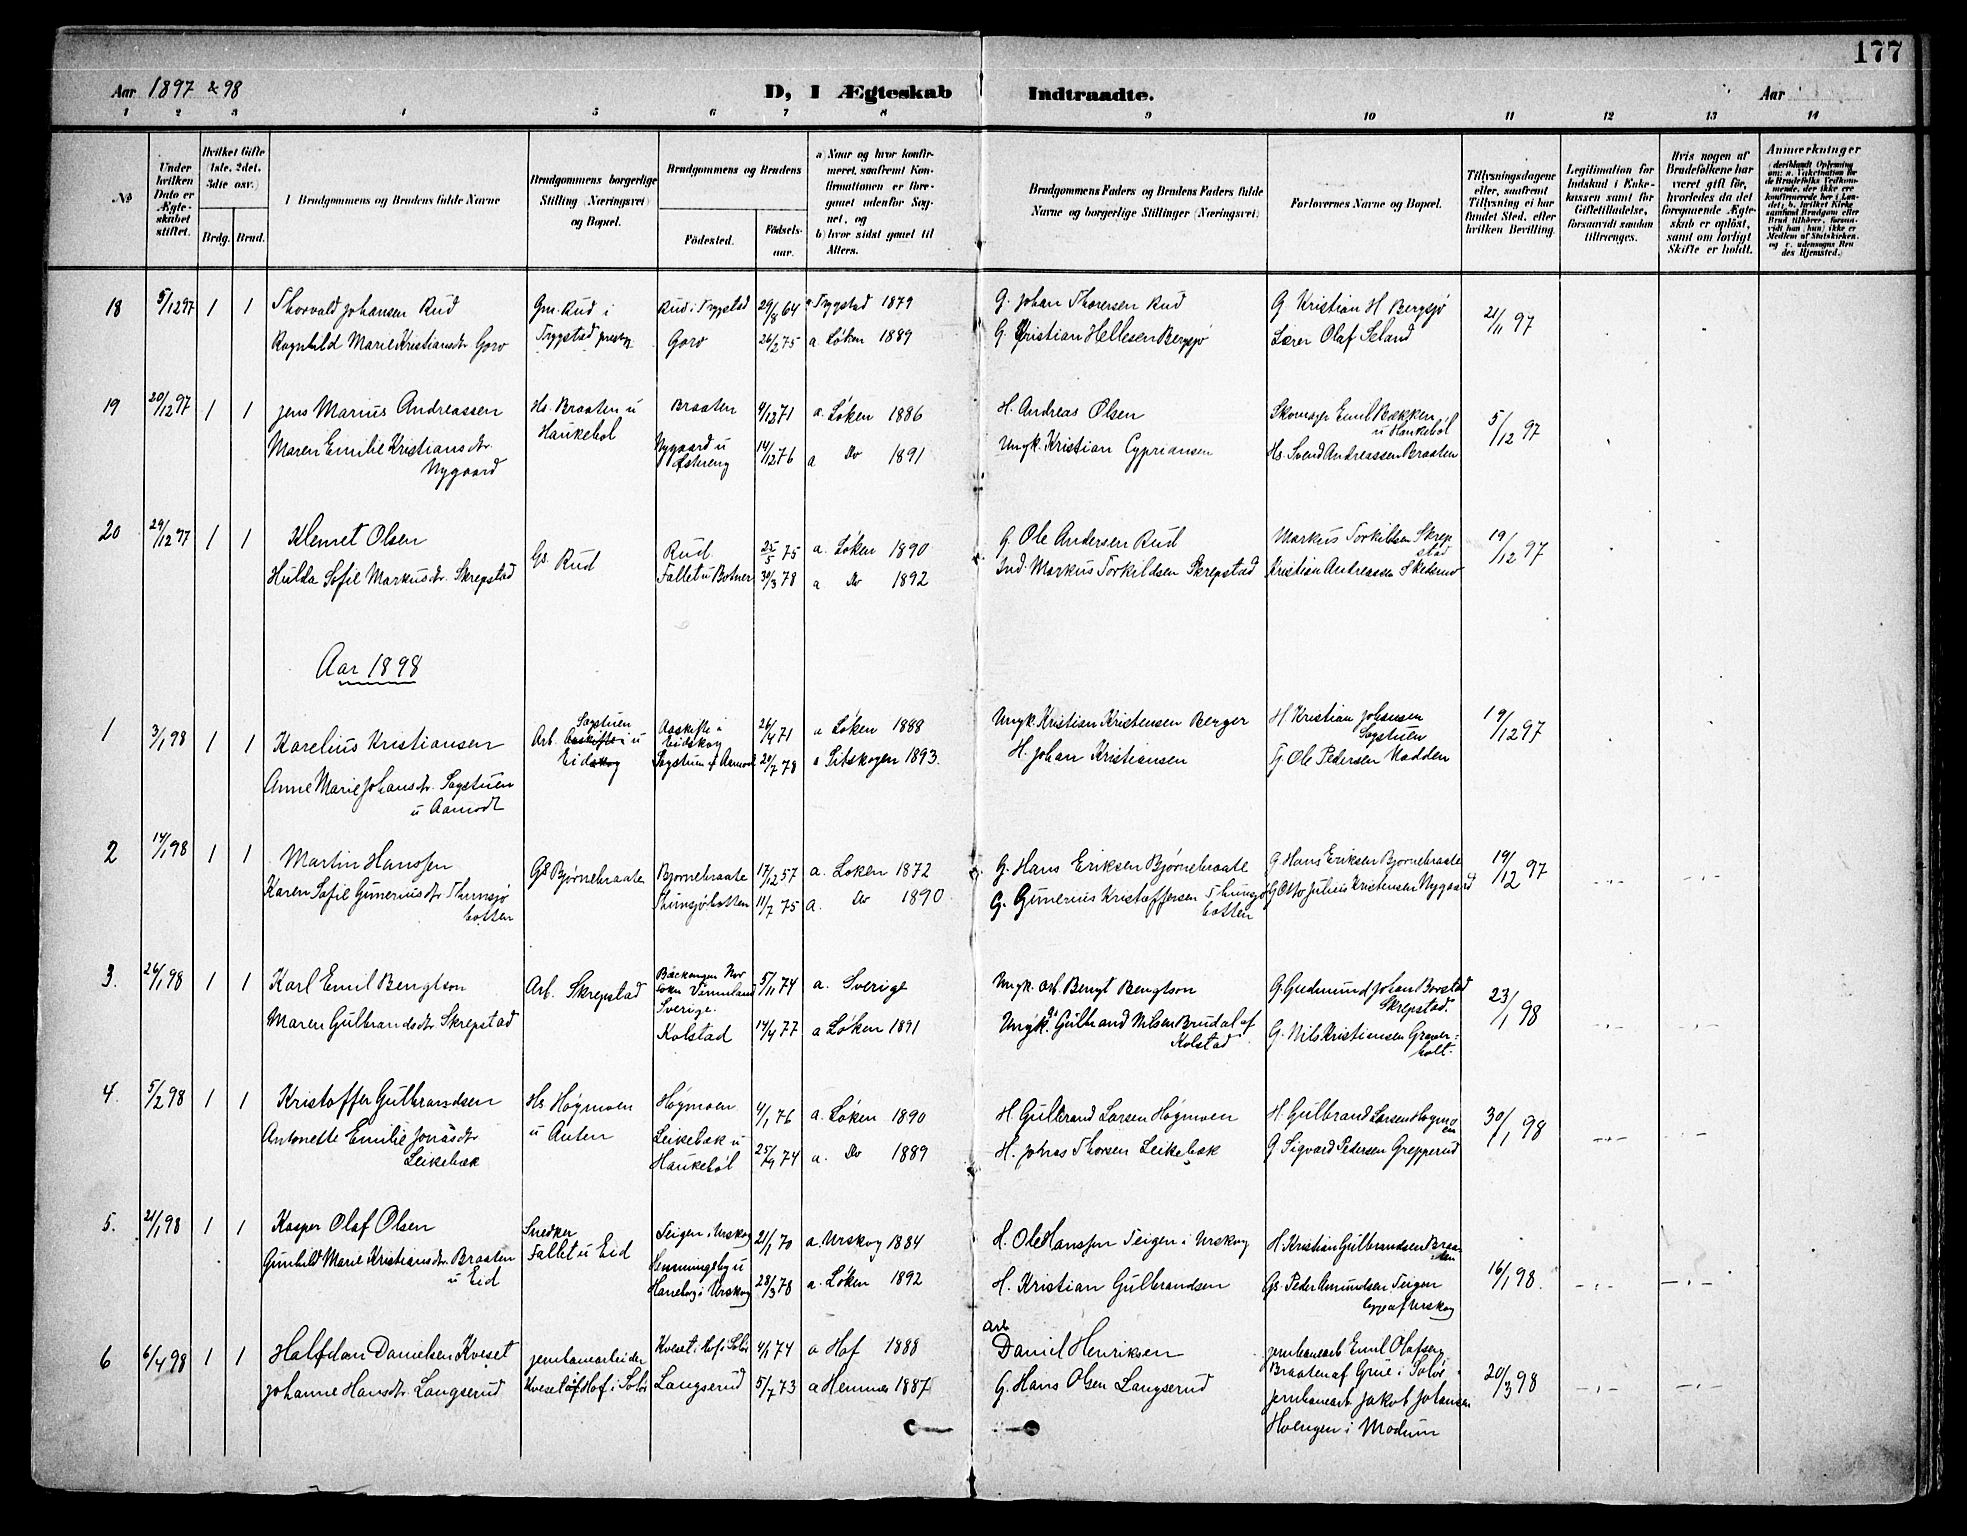 177
Aar 1897 & 98
D, I Ægteskab Indtraadte.
Aar
1 2 3 4 5 6 7 8 9 10 11 12 13 14
No
Under hvilken Dato er Ægteskabet stiftet.
Hvilket Gifte 1ste, 2det, 3die osv.)
Brdg. Brud.
Brudgommens og Brudens fulde Navne
Brudgommens borgerlige Stilling (Næringsvei) og Bopæl.
Brudgommens og Brudens
Födested.
Födselsaar.
a) Naar og hvor konfirmeret, saafremt Konfirmationen er foregaaet udenfor Sognet, og
b) hvor sidst gaaet til Alters.
Brudgommens Faders og Brudens Faders fulde Navne og borgerlige Stillinger (Næringsvei).
Forlovernes Navne og Bopæl.
Tillysningsdagene eller, saafremt Tillysning ei har fundet Sted, efter hvilken Bevilling.
Legitimation for Indskud i Enkekassen samt for Giftetilladelse, forsaavidt saadan tiltrænges.
Hvis nogen af Brudefolkene har været gift før, hvorledes da det foregaaende Ægteskab er oplöst, samt om lovligt Skifte er holdt.
Anmærkninger
18 5/12 97 1 1 Thorvald Johansen Rud Gm. Rud i Rud i Trygstad 29/8 64 a Trygstad 1879 G. Johan Thoresen Rud G Kristian H Bergsjø 21/11 97
Ragnhild Marie Kristiansdr Goro Trygstad præstg Goro 26/2 75 a. Løken 1889 G. Kristian Hellesen Bergsjø Lærer Olaf Seland
19 20/12 97 1 1 Jens Marius Andreassen Hs. Braaten u Haukebøl Braaten 4/12 71 a. Løken 1886 H. Andreas Olsen Skomager Emil Bækken u Haukebøl 5/12 97
Maren Emilie Kristiansdr. Nygaard Nygaard u 14/12 76 a Do 1891 Ungk. Kristian Cypriansen Hs. Svend Andreassen Braaten
20 29/12 97 1 1 Klemet Olsen Gs. Rud Rud 25/5 75 a. Løken 1890 G. Ole Andersen Rud Markus Torkildsen Skrepstad 19/12 97
Hulda Sofie Markusdr. Skrepstad Fallet u Botner 30/3 78 a Do 1892 Ind. Markus Torkildsen Skrepstad Kristian Andreassen Skedsmo
Aar 1898
1 3/1 98 1 1 Karelius Kristiansen Arb. Sagstuen Aaskifte i u Eidskog Aaskifte i Eidskog 26/4 71 a Løken 1888 Ungk. Kristian Kristensen Berger H Kristian Johansen Sagstuen 19/12 97
Anne Marie Johansdr. Sagstuen u Aamodt Sagstuen u Aamodt 20/7 78 a Setskogen 1893. H. Johan Kristiansen G. Ole Pedersen Madden
2 14/1 98 1 1 Martin Hanssen Gs Bjørnebraate Bjørnebraate 17/12 57 a. Løken 1872 G. Hans Eriksen Bjørnebraate G Hans Eriksen Bjørnebraate 19/12 97
Karen Sofie Gunerius dr. Thunsjøbotten Thunsjøbotten 11/7 75 a. Do 1890 G. Gunerius Kristoffersen Thunsjøbotten G Otto Julius Kristensen Nygaard
3. 26/1 98 1 1 Karl Emil Bengtson Arb. Skrepstad Bäckengen Vermland Sverige. 5/11 74 a. Sverige Ungk. arb. Bengt Bengtson G. Gudmund Johan Borstad Skrepstad. 23/1 98
Maren Gulbrandsdr Skrepstad Kolstad 14/4 77 a Løken 1891 Ungk. Gulbrand Nilsen Brudal af Kolstad G. Nils Kristiansen Graverholt.
4. 5/2 98 1 1 Kristoffer Gulbrandsen Hs Høgmoen u Anten Høgmoen 4/1 76 a. Løken 1890 H. Gulbrand Larsen Høgmoen H. Gulbrand Larsen Høgmoen 30/1 98
Antonette Emilie Jonasdr. Leikebæk Leikebæk u Haukebøl 25/9 74 a. Do 1889 H. Johas Thorsen Leikebæk G Sigvard Pedersen Grepperud
5. 21/1 98 1 1 Kasper Olaf Olsen Snedker Fallet u Eid Teigen i Urskog 21/1 70 a. Urskog 1884 H. Ole Hanssen Teigen i Urskog H. Kristian Gulbrandsen Braaten 16/1 98.
Gunhild Marie Kristiansdr. Braaten u Eid Henningsby u Haneborg i Urskog 28/3 78 a. Løken 1892 H. Kristian Gulbrandsen Gs. Peder Amundsen Teigen af Urskog
6 6/4 98 1 1 Halfdan Danielsen Kveset jernbanearbeider Kveset i Hof i Solør 4/1 74 a Hof 1888 arb Daniel Henriksen jernbanearb Emil Olafsen Braaten af Grue i Solør 20/3 98
Johanne Hansdr. Langserud Kveset af Hof i Solør Langserud 5/7 73 a Hemnes 1887 G. Hans Olsen Langserud jernbanearb Jakob Johansen Hvengen i Modum